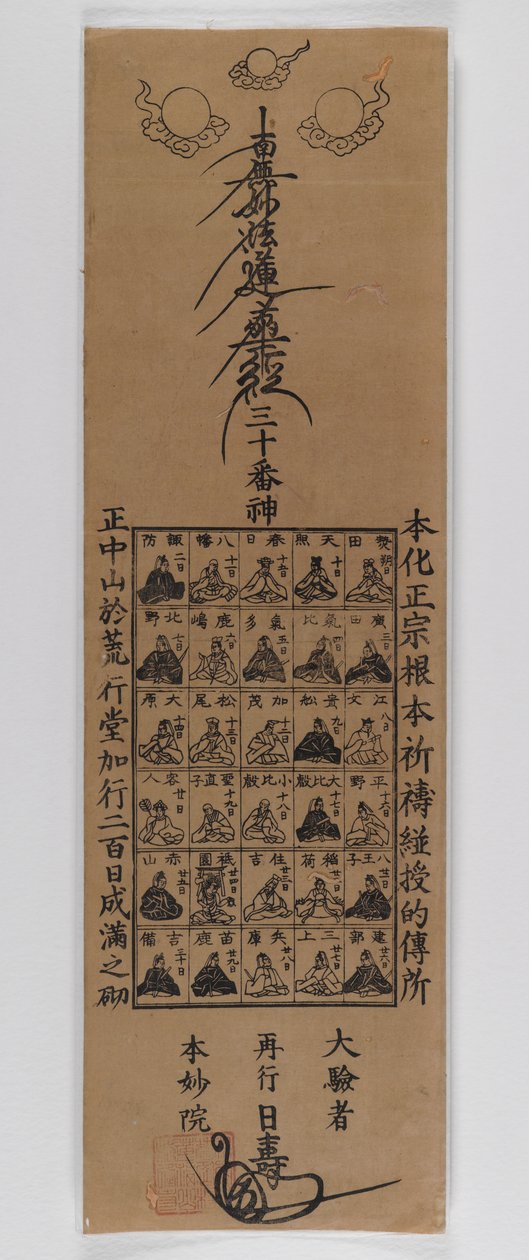 南無妙法蓮華経
三十番神
本化正宗根本祈禱経授的傳所
熱田 朔日
天照 十日
春日 十五日
八幡 十一日
諏防 二日
廣田 三日
氣比 四日
氣多 五日
鹿嶋 六日
北野 七日
江文 八日
貴船 九日
加茂 十二日
松尾 十三日
大原 十四日
平野 十六日
大比叡 十七日
小比叡 十八日
聖真子 十九日
客人 廿日
八王子 廿一日
稲荷 廿二日
住吉 廿三日
祇園 廿四日
赤山 廿五日
建部 廿六日
三上 廿七日
兵庫 廿八日
苗鹿 廿九日
吉備 三十日
正中山於荒行堂加行二百日成満之砌
大驗者
再行日壽
本妙院